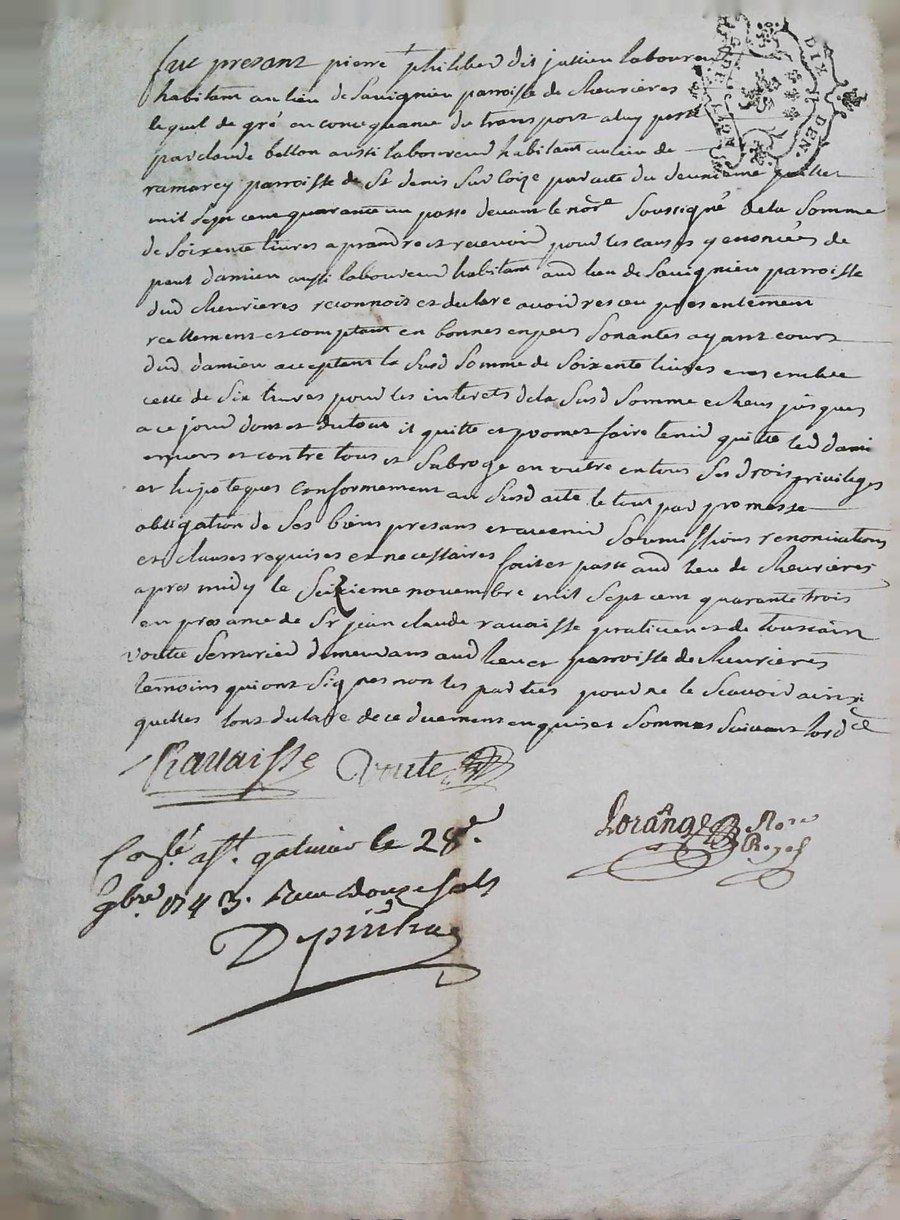 fut presant pierre philiber dit jullien laboureur
habitant au lieu de Savignieu parroisse de chevrieres
lequel de gré en consequance du transport a luy passé
par claude bellon aussi laboureur habitant au lieu de
ramarey parroisse de St denis Sur Coize par acte du
mil Sept cent quarante un passé devant le nore Soussigné de la Somme
de Soixente livres a prandre et recevoir pour les causes y enoncées de
damieu aussi laboureur habitant aud lieu de Savignieu parroisse
dud chevrieres reconnois et declare avoir resceu presentement
reellement et comptant en bonnes espesses Sonantes ayant cours
dud damieu acceptant la Susd Somme de Soixente livres ensemblee
celle de Six livres pour les interets de la Susd Somme echeus jusques
a ce jour dont et du tout il quitte et promet faire tenir quitte led damieu
envers et contre tous et Subroge en outre en tous Ses drois privileges
et hipoteques conformement au Susd acte le tout par promesse
obligation de Ses biens presans et avenir Soumissions renonciations
et clauses requises et necessaires fait et passé aud lieu de chevrieres
apres midy le Seizieme novembre mil Sept cent quarante trois
en presance de Sr jean claude ravaisse praticien et de toussain
voute Serrurier demeurans aud lieu et parroisse de chevrieres
temoins qui ont Signes non les parties pour ne le Scavoir ainsi
quelles lont declaré de ce duement enquises et Sommes Suivant lordce
Ravaisse Voute
Lorange Nore
Royal
Conlé a St galmier le 28e
9bre 1743. Receu douze sols
GN DE LYON
RIE DEN.